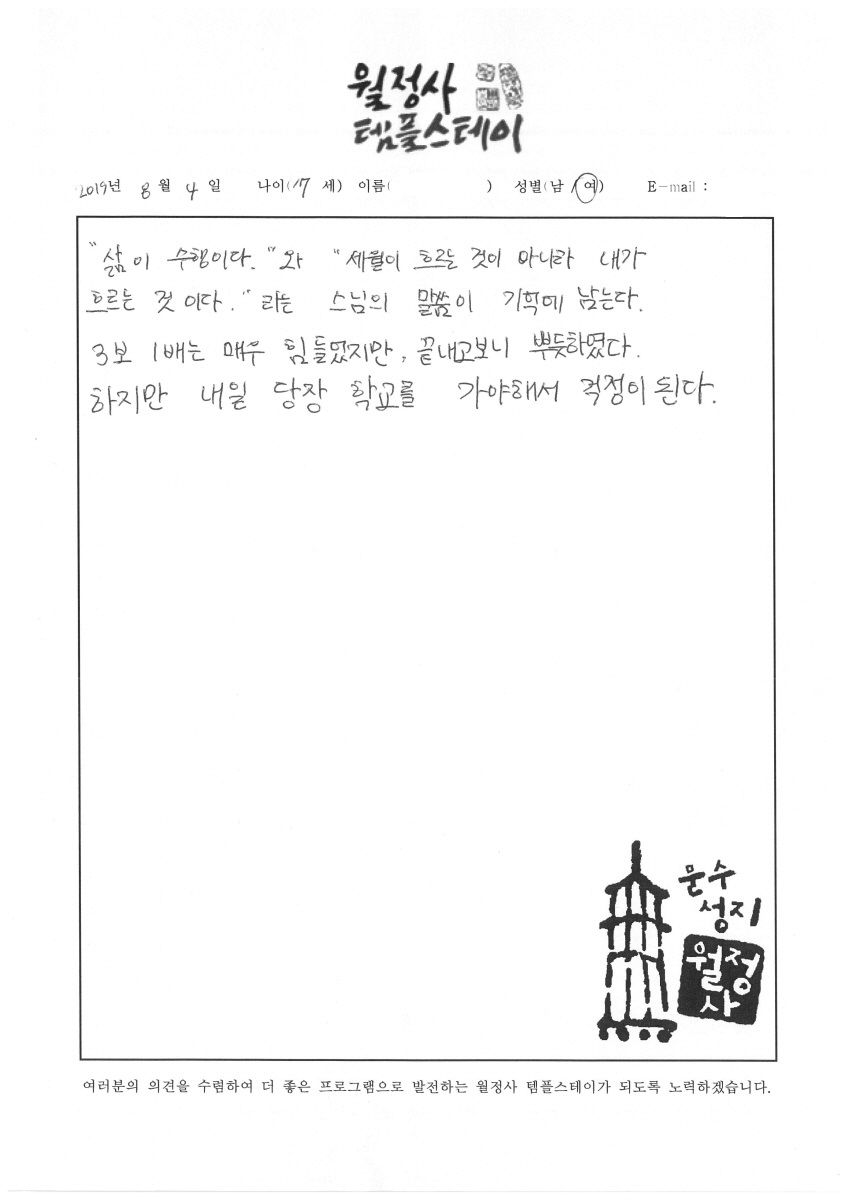 월정사
템플스테이
2019년 8월 4일 나이(17 세) 이름( ) 성별(남/여) E-mail :
"삶이 수행이다."와 "세월이 흐르는 것이 아니라 내가
흐르는 것이다."라는 스님의 말씀이 기억에 남는다.
3보 1배는 매우 힘들었지만, 끝내고보니 뿌듯하였다.
하지만 내일 당장 학교를 가야해서 걱정이 된다.
문수
성지
월정
사
여러분의 의견을 수렴하여 더 좋은 프로그램으로 발전하는 월정사 템플스테이가 되도록 노력하겠습니다.